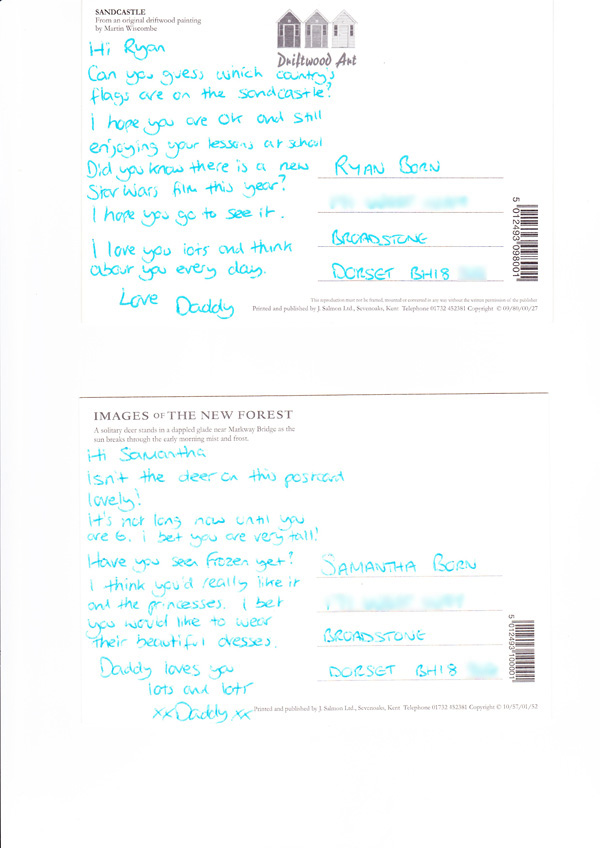 SANDCASTLE
From an original driftwood painting
by Martin Wiscombe
Driftwood Art
Hi Ryan
Can you guess which country's
flags are on the sandcastle?
I hope you are OK and still
enjoying your lessons at school
Did you know there is a new
Star Wars film this year?
I hope you go to see it.
I love you lots and think
about you every day.
Love Daddy
RYAN BORN
BROADSTONE
DORSET BH18
5 012493 098001
This reproduction may not be framed, mounted or cemented in any way without the written permission of the publisher
Printed and published by J. Salmon Ltd., Sevenoaks, Kent Telephone 01732 452381 Copyright ©
IMAGES OF THE NEW FOREST
A solitary deer stands in a dappled glade near Markway Bridge as the
sun breaks through the early morning mist and frost.
Hi Samantha
Isn't the deer on this postcard
lovely!
It's not long now until you
are 6. I bet you are very tall!
Have you seen Frozen yet?
I think you'd really like it
and the princesses. I bet
you would like to wear
their beautiful dresses.
Daddy loves you
lots and lots
xx Daddy xx
SAMANTHA BORN
BROADSTONE
DORSET BH18
5 012493 100001
Printed and published by J. Salmon Ltd., Sevenoaks, Kent Telephone 01732 452381 Copyright © 10/57/01/52